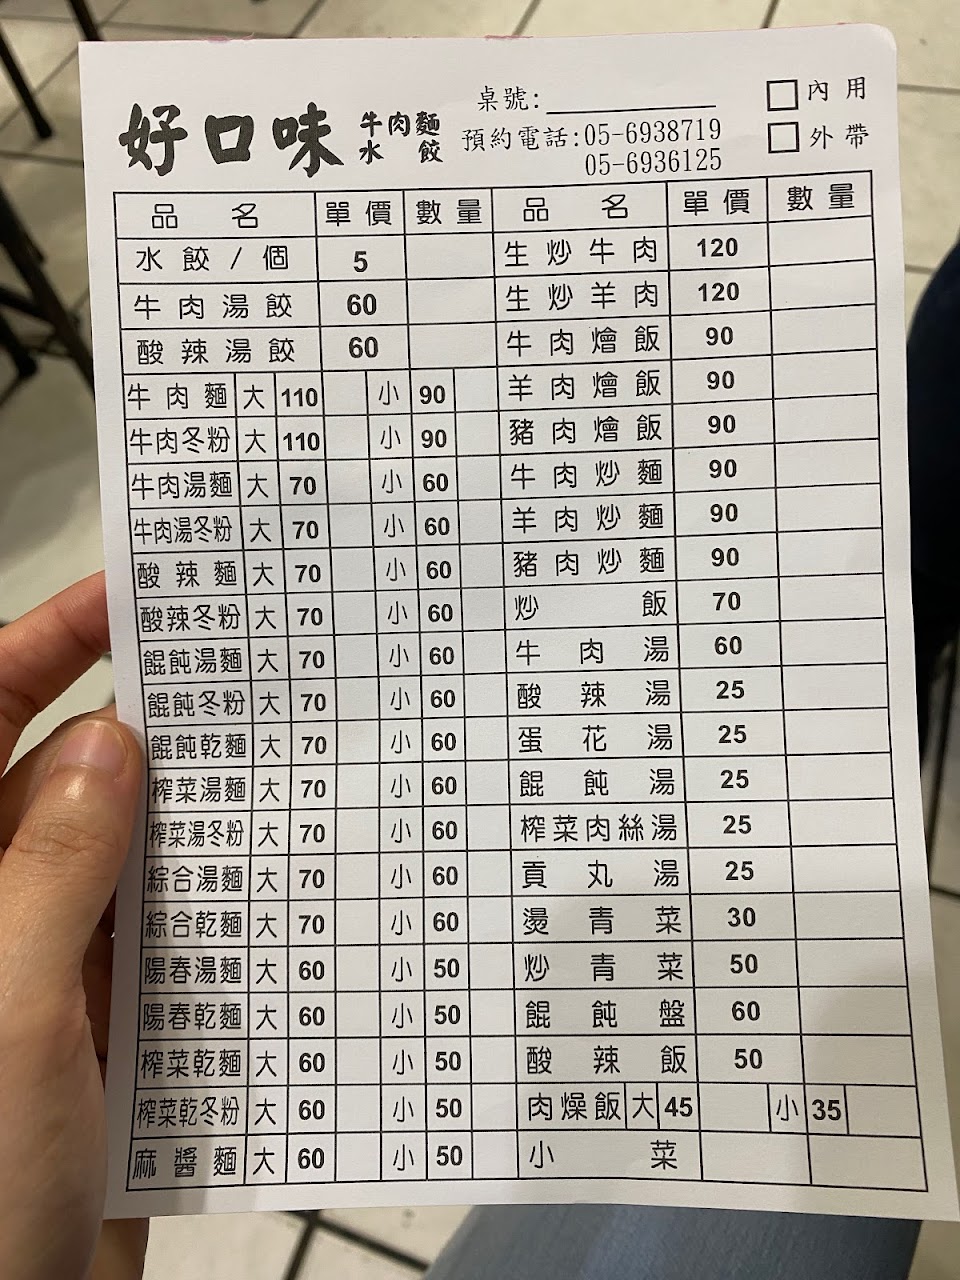 好口味 牛肉麵 水餃
桌號:
預約電話:05-6938719
05-6936125
內用
外帶
品名 單價 數量 品名 單價 數量
水餃/個 5 生炒牛肉 120
牛肉湯餃 60 生炒羊肉 120
酸辣湯餃 60 牛肉燴飯 90
牛肉麵 大 110 小 90 羊肉燴飯 90
牛肉冬粉 大 110 小 90 豬肉燴飯 90
牛肉湯麵 大 70 小 60 牛肉炒麵 90
牛肉湯冬粉 大 70 小 60 羊肉炒麵 90
酸辣麵 大 70 小 60 豬肉炒麵 90
酸辣冬粉 大 70 小 60 炒飯 70
餛飩湯麵 大 70 小 60 牛肉湯 60
餛飩冬粉 大 70 小 60 酸辣湯 25
餛飩乾麵 大 70 小 60 蛋花湯 25
榨菜湯麵 大 70 小 60 餛飩湯 25
榨菜湯冬粉 大 70 小 60 榨菜肉絲湯 25
綜合湯麵 大 70 小 60 貢丸湯 25
綜合乾麵 大 70 小 60 燙青菜 30
陽春湯麵 大 60 小 50 炒青菜 50
陽春乾麵 大 60 小 50 餛飩盤 60
榨菜乾麵 大 60 小 50 酸辣飯 50
榨菜乾冬粉 大 60 小 50 肉燥飯 大 45 小 35
麻醬麵 大 60 小 50 小菜